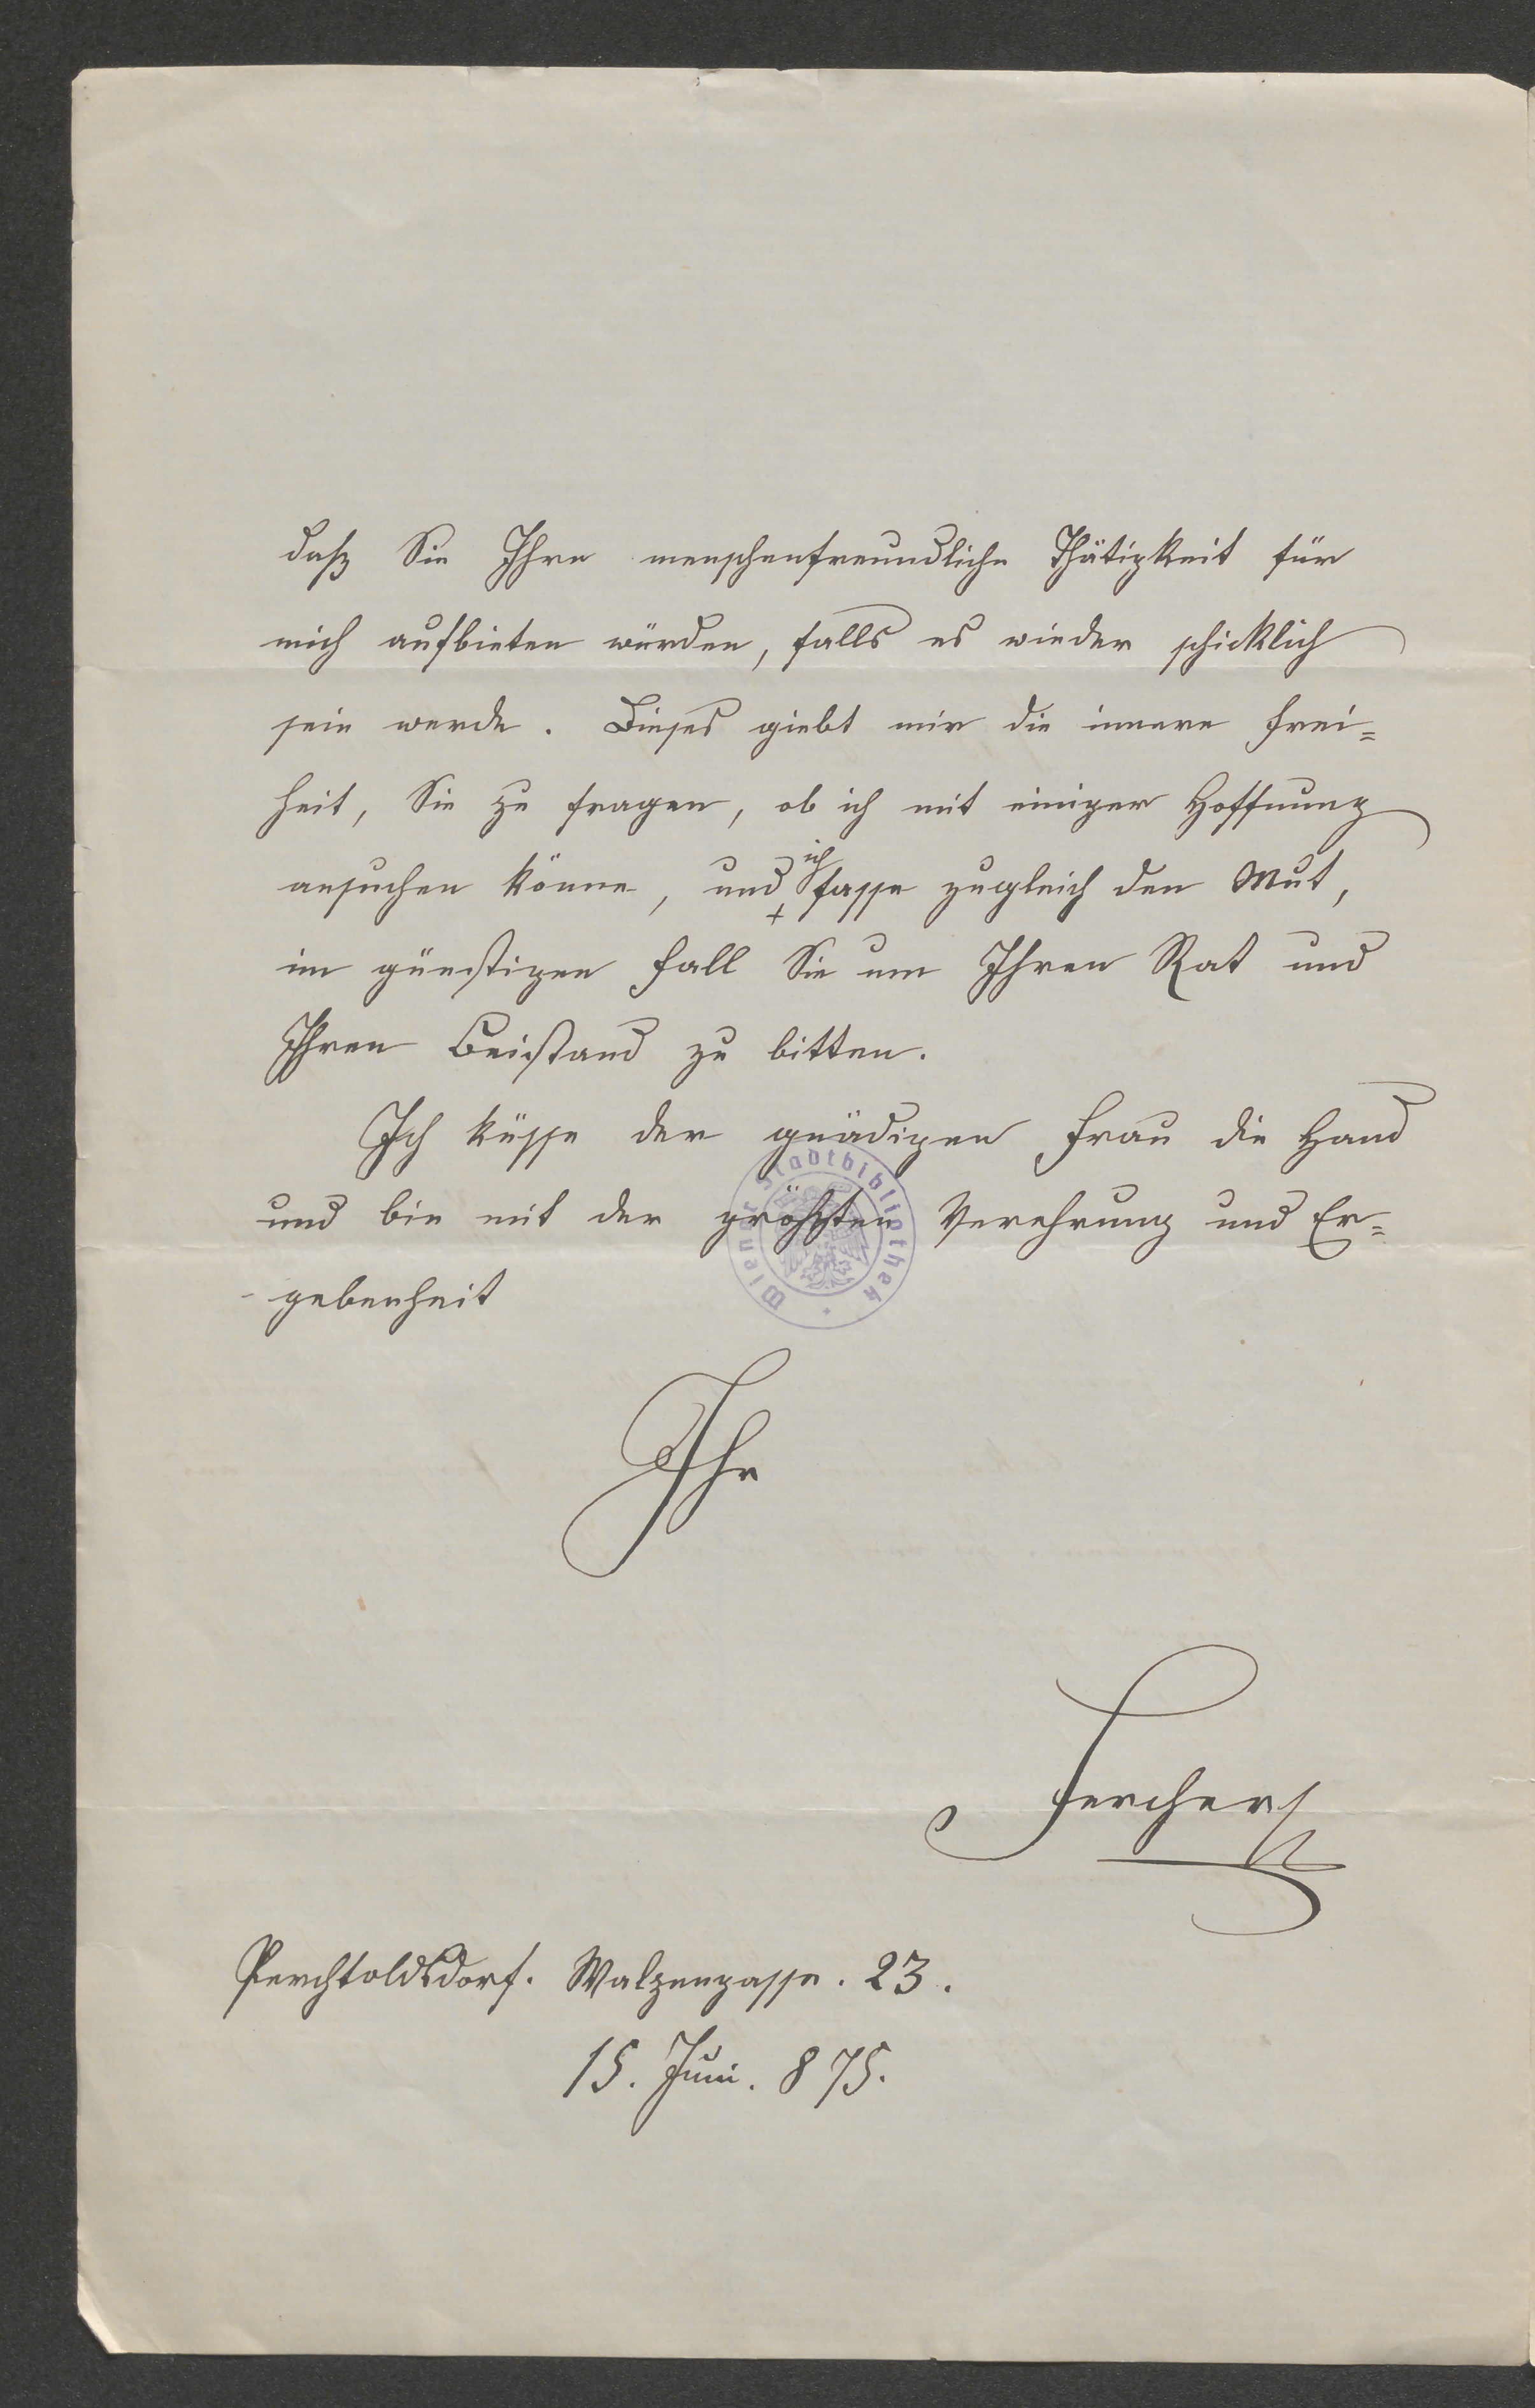 daß Sie Ihre menschenfreundliche Thätigkeit für
mich aufbieten würden, falls es wieder schicklich
sein werde. Dieses giebt mir die innere Frei=
heit, Sie zu fragen, ob ich mit einiger Hoffnung
ansuchen könne, und ich fasse zugleich den Mut,
im günstigen Fall Sie um Ihren Rat und
Ihren Beistand zu bitten.
Ich küsse der gnädigen Frau die Hand
und bin mit der größten Verehrung und Er=
gebenheit
Wiener Stadtbibliothek
Ihr
Fercher
Perchtoldsdorf. Walzengasse. 23.
15. Juni. 875.